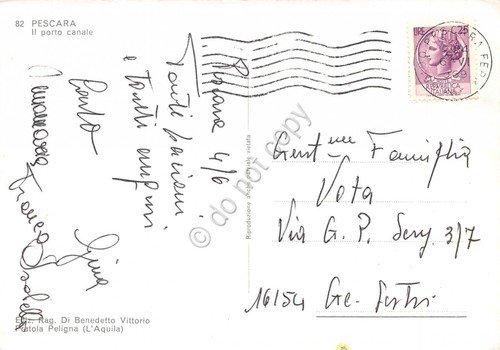 82 PESCARA
Il porto canale
Pescara 4/6
Tanti bacioni
e tanti auguri
Gina
Franco Isabella
Riproduzione vietata
Ediz. Rag. Di Benedetto Vittorio
Pratola Peligna (L'Aquila)
LIRE 25
REPVBBLICA
ITALIANA
Gent.me Famiglia
Vota
Via G. P. 3/7
16154 Ge. Sestri
do not copy